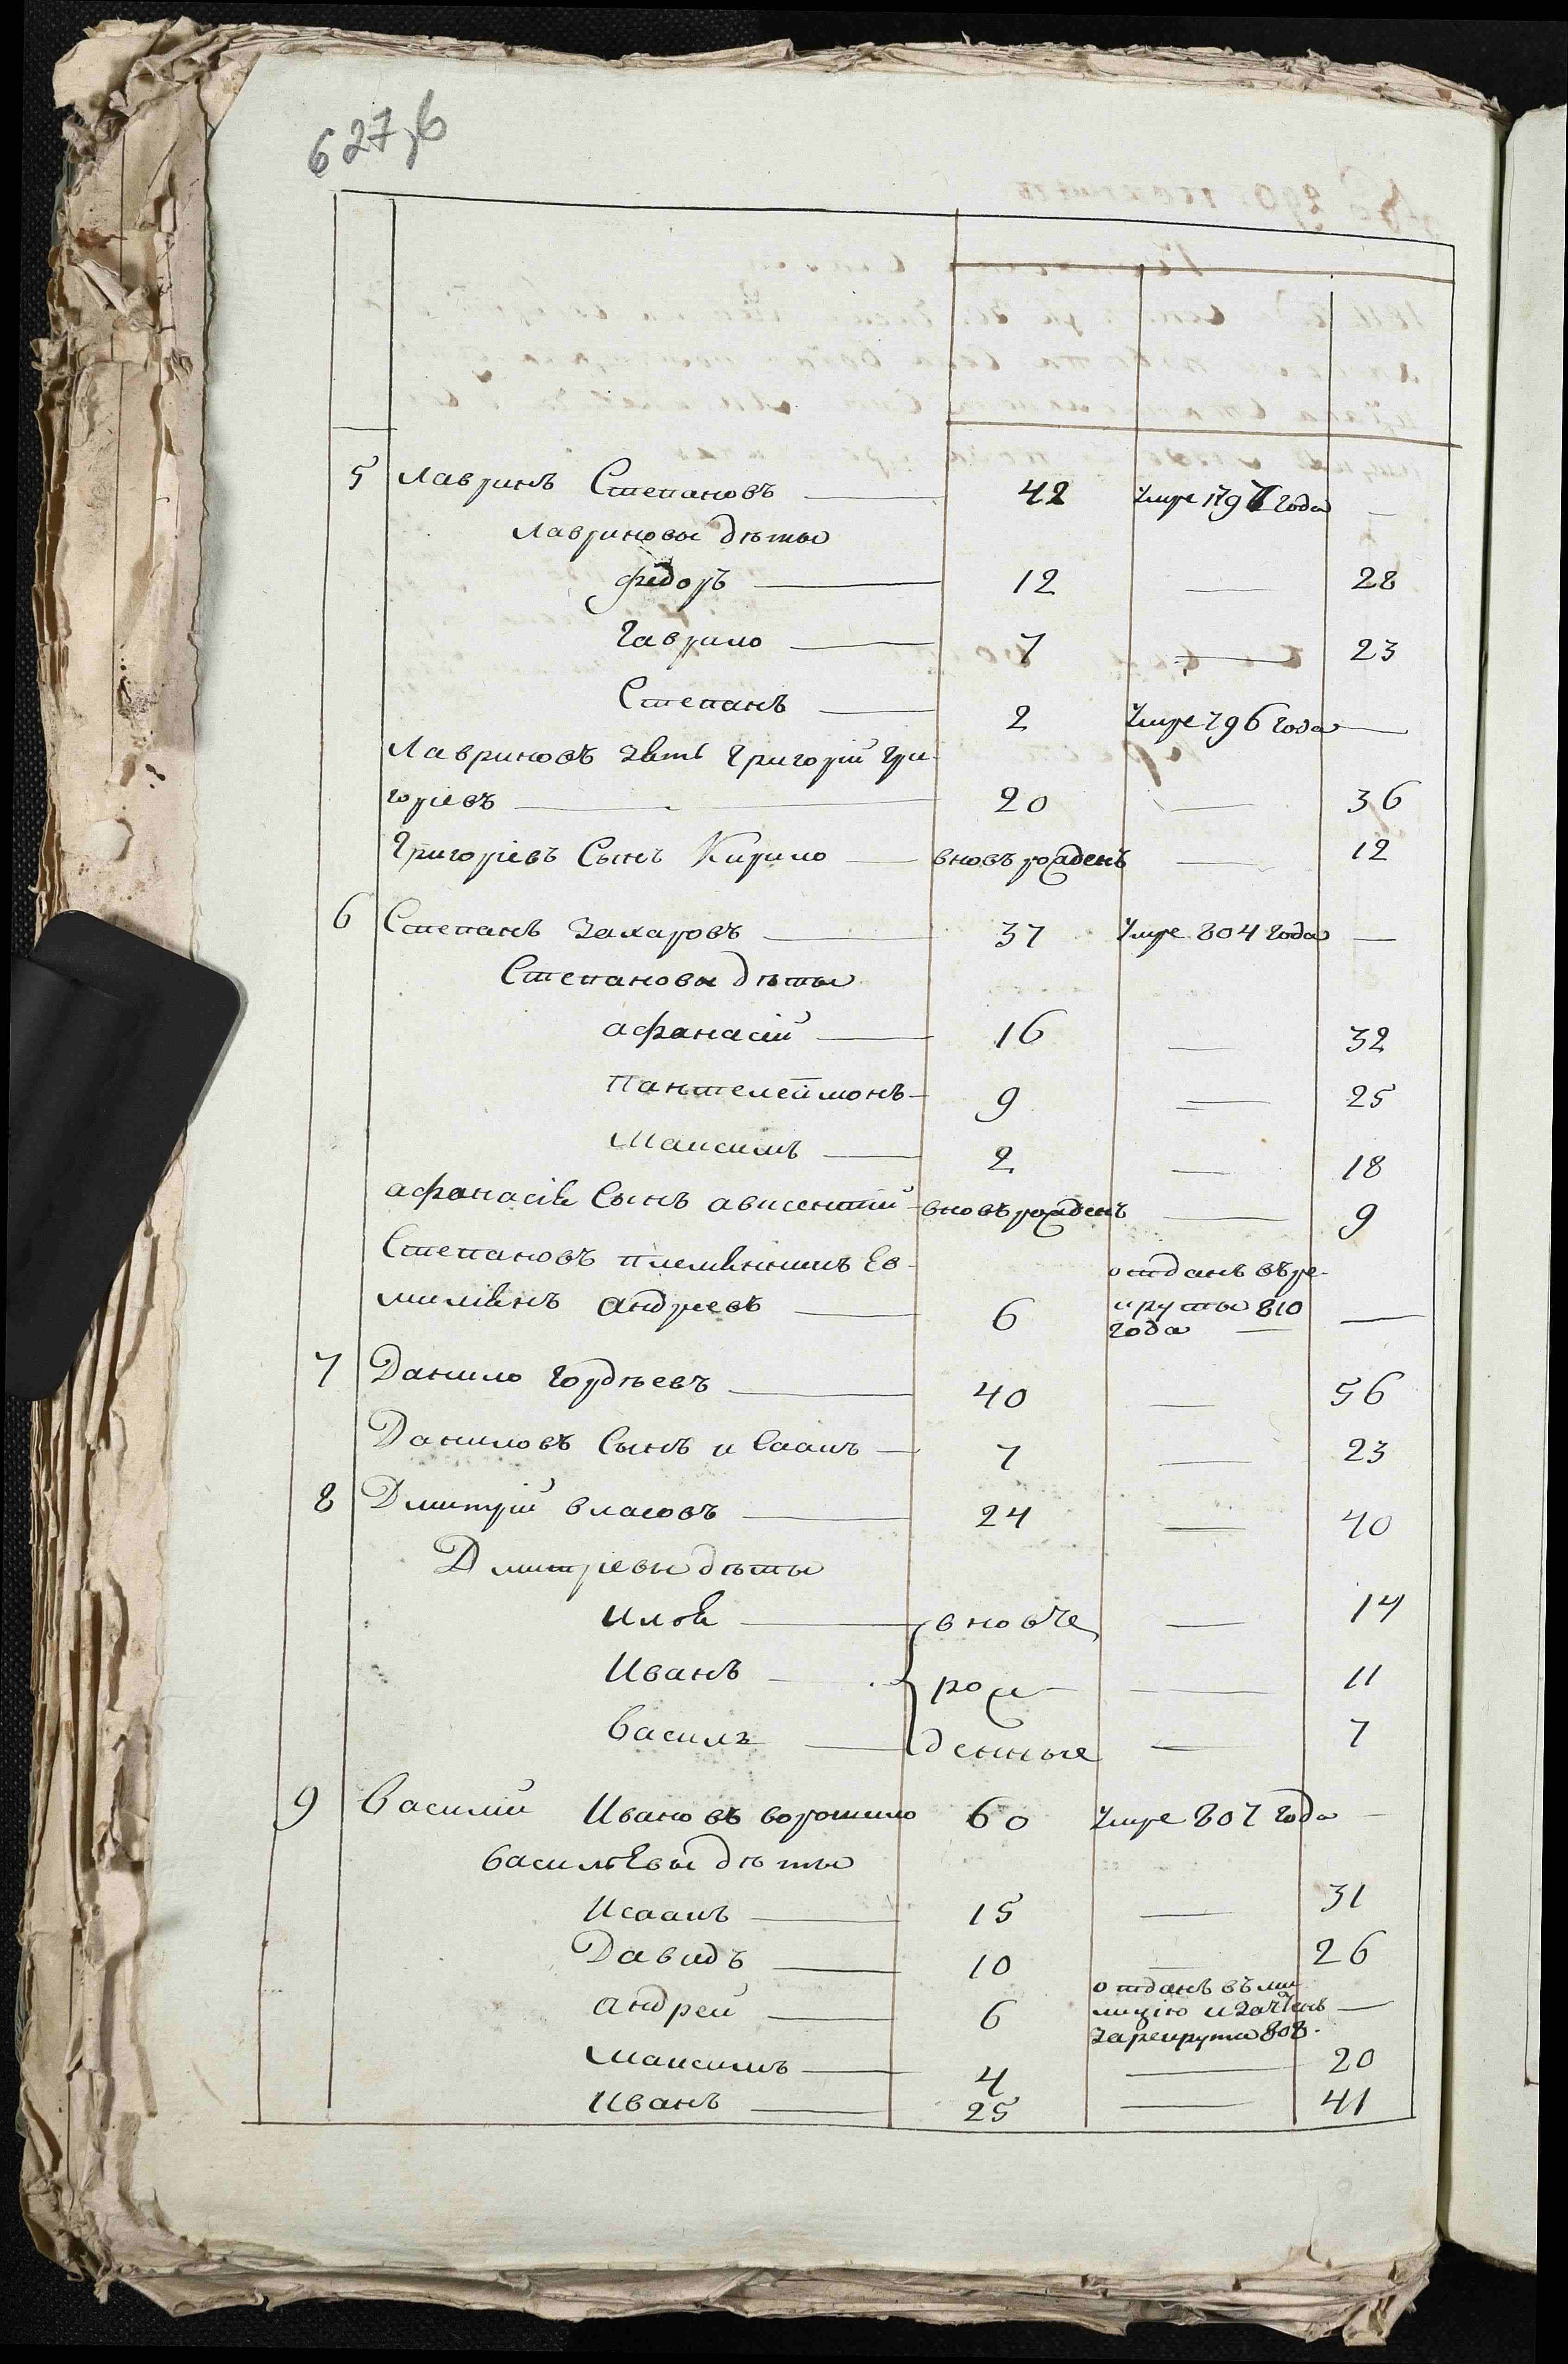 627,б
5 Лавринъ Степановъ — 42 Умре 1797 года —
Лавриновы дѣты
федоръ — 12 — 28
Гаврило — 7 — 23
Степанъ — 2 Умре 796 года —
Лавриновъ зять Григорій Гри-
горіевъ — 20 — 36
Григоріевъ Сынъ Кирило — вновъ рожденъ — 12
6 Степанъ Захаровъ — 37 Умре 804 года —
Степановы дѣты
афанасій — 16 — 32
Пантелеймонъ — 9 — 25
Максимъ — 2 — 18
афанасія Сынъ авксентій — вновъ рожденъ — 9
Степановъ племянникъ Ев-
милиянъ андреевъ — 6 отданъ въ ре-
круты 810
года — —
7 Данило Гордѣевъ — 40 — 56
Даниловъ Сынъ исаакъ — 7 — 23
8 Дмитрій власовъ — 24 — 40
Дмитріевы дѣты
Илія — вновъ — 14
Иванъ — рож- — 11
Василъ — денные — 7
9 Василій Ивановъ ворошило 60 Умре 807 года —
васильевы дѣты
Исаакъ — 15 — 31
Давидъ — 10 — 26
андрей — 6 отданъ въ ми-
лицію и зачтенъ —
за рекрута 808.
Максимъ — 4 — 20
Иванъ — 25 — 41